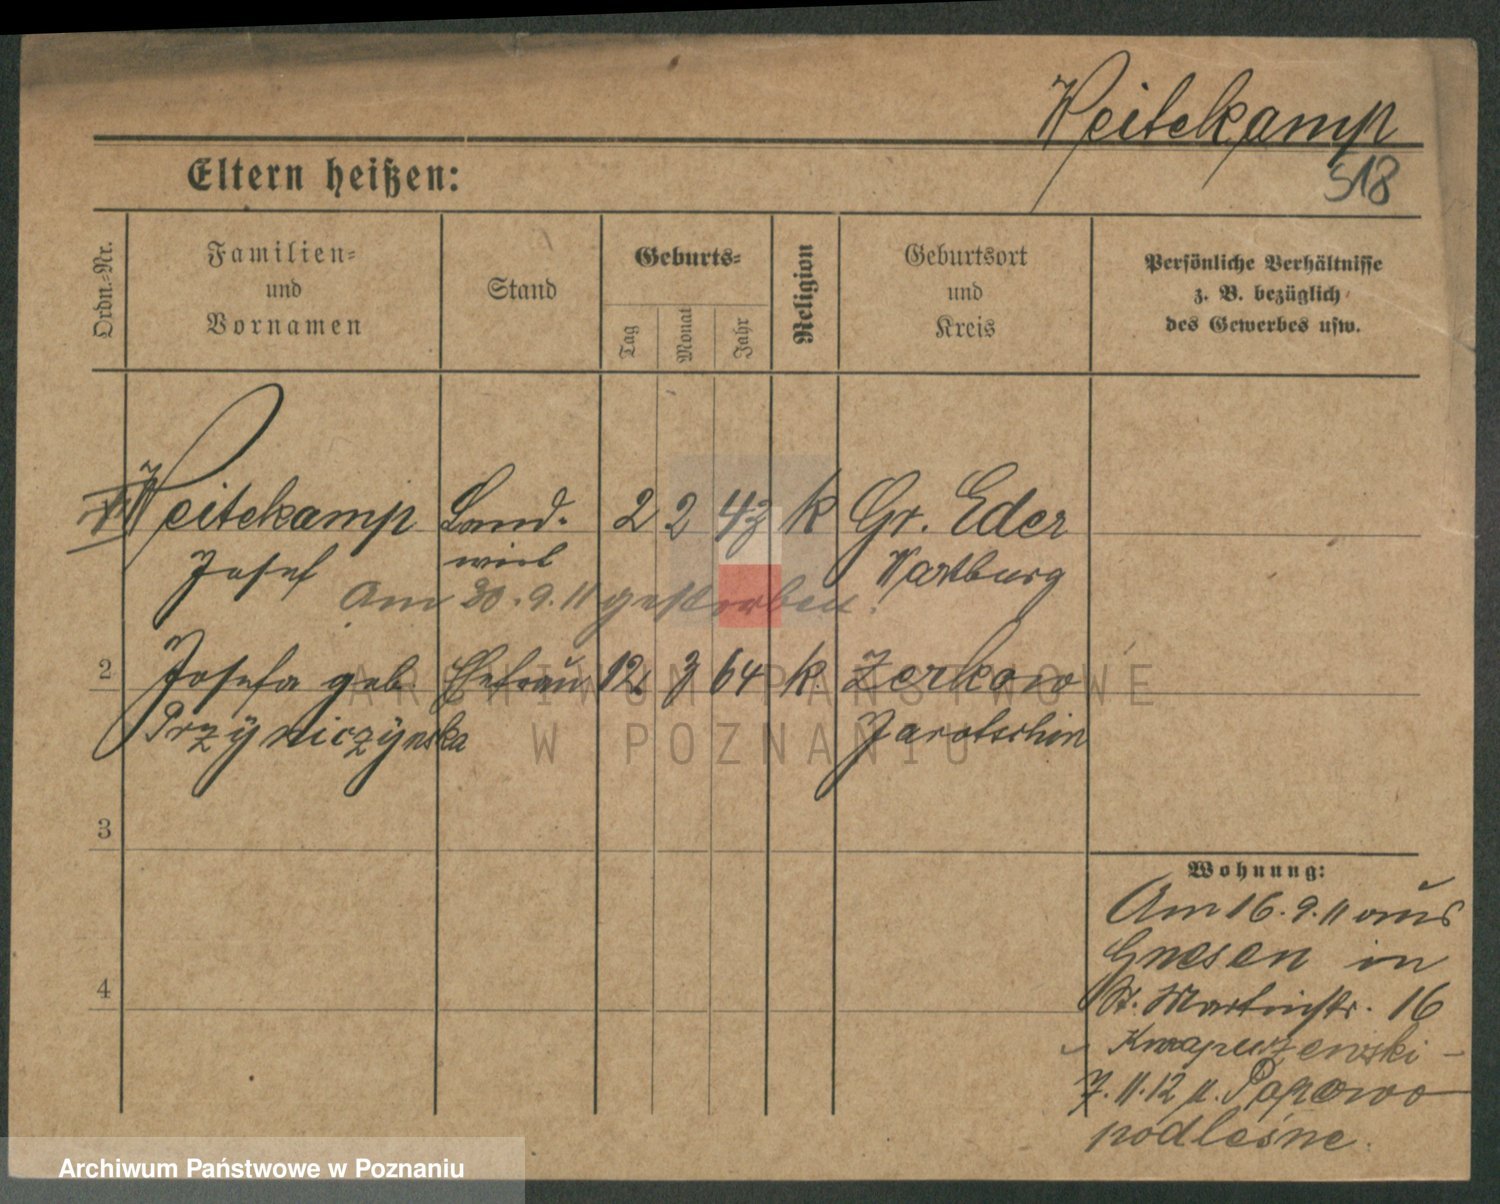 Weitekamp
518
Eltern heißen:
Ordn.-Nr.
Familien-
und
Vornamen
Stand
Geburts-
Tag
Monat
Jahr
Religion
Geburtsort
und
Kreis
Persönliche Verhältnisse
z. B. bezüglich
des Gewerbes usw.
Weitekamp Land- 2 2 43 k Gr. Eder
Josef wirt Wartburg
Am 30.9.11 gestorben.
2 Josefa geb. Ehefrau 12 3 64 k Zerkowo
Przyniczynska Jarotschin
3
4
Wohnung:
Am 16.9.11 aus
Gnesen in
St. Martinstr. 16
7.11.12 n. Papowo
podleśne.
ARCHIWUM PAŃSTWOWE
W POZNANIU
Archiwum Państwowe w Poznaniu